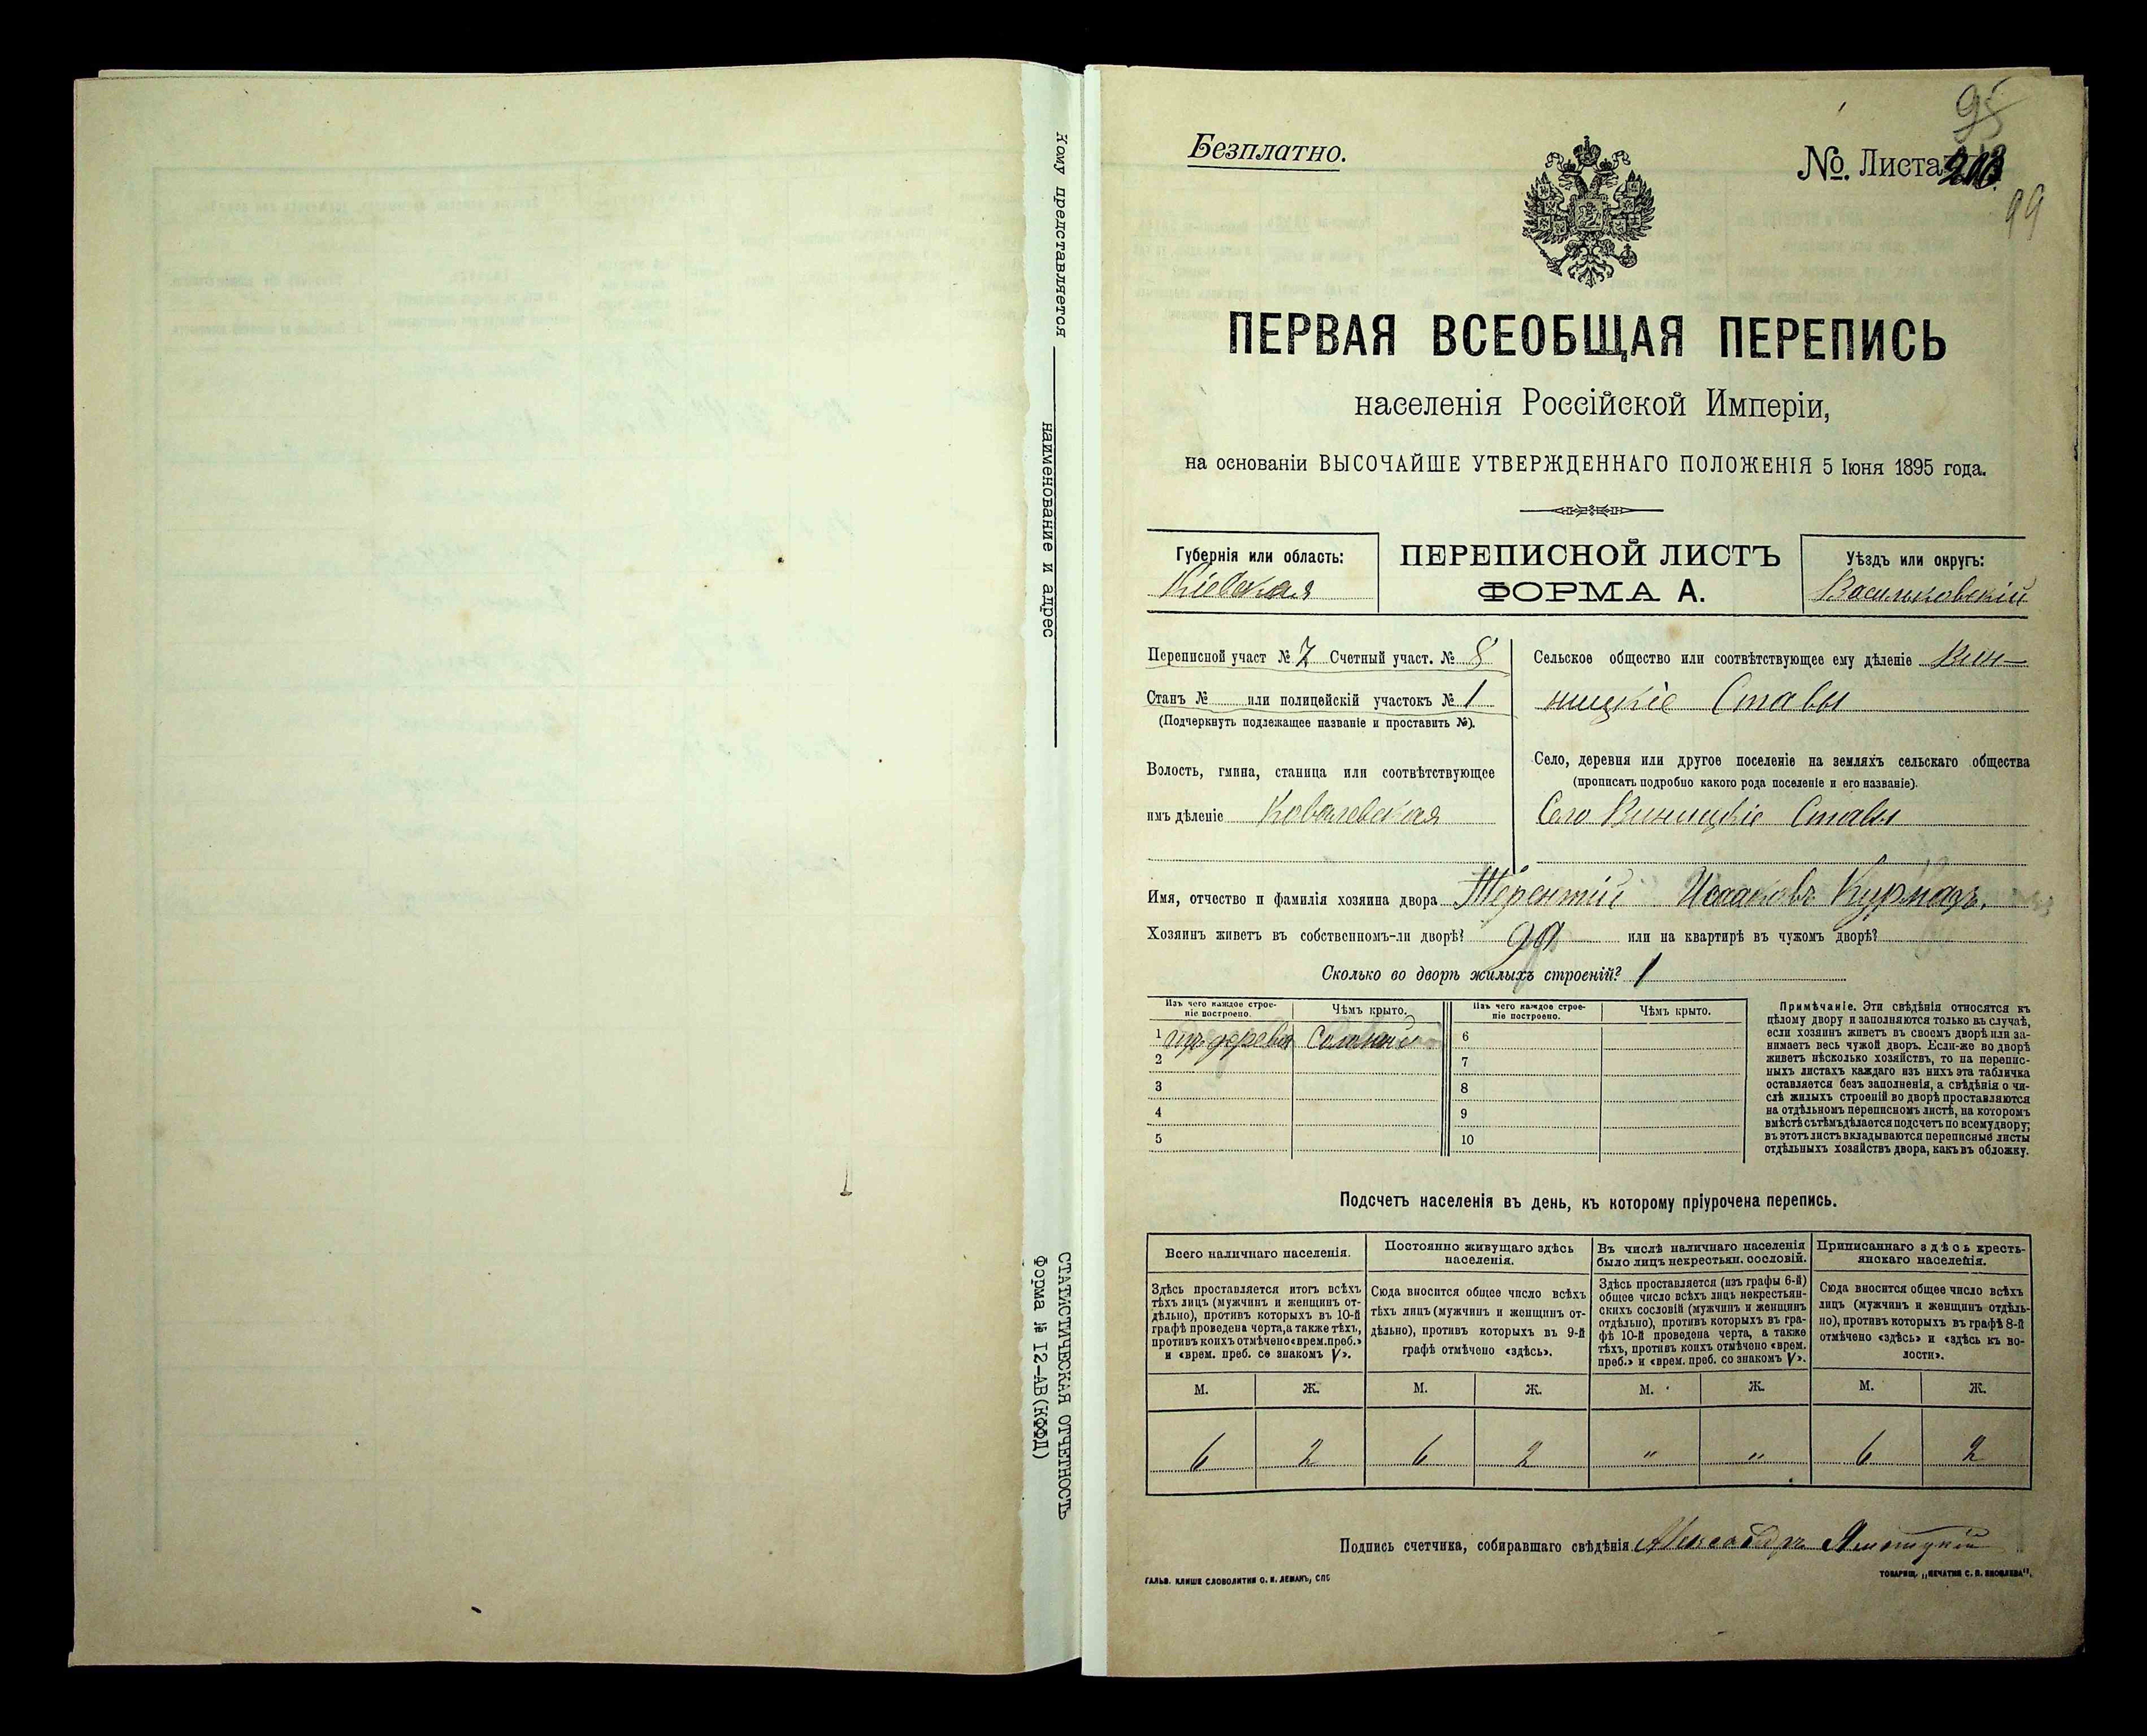 Кому представляется
наименование и адрес
СТАТИСТИЧЕСКАЯ ОТЧЕТНОСТЬ
Форма № I2-АВ(КФФД)
95
Безплатно.
№. Листа 203
99
ПЕРВАЯ ВСЕОБЩАЯ ПЕРЕПИСЬ
населенія Россійской Имперіи,
на основаніи ВЫСОЧАЙШЕ УТВЕРЖДЕННАГО ПОЛОЖЕНІЯ 5 Іюня 1895 года.
Губернія или область:
Кіевская
ПЕРЕПИСНОЙ ЛИСТЪ
ФОРМА А.
Уѣздъ или округъ:
Васильковскій
Переписной участ № 7 Счетный участ. № 8
Станъ № или полицейскій участокъ № 1
(Подчеркнуть подлежащее названіе и проставить №).
Волость, гмина, станица или соотвѣтствующее
имъ дѣленіе Ковалевская
Сельское общество или соотвѣтствующее ему дѣленіе Вин-
ницкіе Ставы
Село, деревня или другое поселеніе на земляхъ сельскаго общества
(прописать подробно какого рода поселеніе и его названіе).
Село Виницкіе Ставы
Имя, отчество и фамилія хозяина двора Терентій Исааковъ Курмазъ.
Хозяинъ живетъ въ собственномъ-ли дворѣ? да или на квартирѣ въ чужомъ дворѣ?
Сколько во дворѣ жилыхъ строеній? 1
Изъ чего каждое строе-
ніе построено.
Чѣмъ крыто.
Изъ чего каждое строе-
ніе построено.
Чѣмъ крыто.
1 изъ дерева Соломой 6
2 7
3 8
4 9
5 10
Примѣчаніе. Эти свѣдѣнія относятся къ
цѣлому двору и заполняются только въ случаѣ,
если хозяинъ живетъ въ своемъ дворѣ или за-
нимаетъ весь чужой дворъ. Если-же во дворѣ
живетъ нѣсколько хозяйствъ, то на перепис-
ныхъ листахъ каждаго изъ нихъ эта табличка
оставляется безъ заполненія, а свѣдѣнія о чи-
слѣ жилыхъ строеній во дворѣ проставляются
на отдѣльномъ переписномъ листѣ, на которомъ
вмѣстѣ съ тѣмъ дѣлается подсчетъ по всему двору;
въ этотъ листъ вкладываются переписные листы
отдѣльныхъ хозяйствъ двора, какъ въ обложку.
Подсчетъ населенія въ день, къ которому пріурочена перепись.
Всего наличнаго населенія.
Здѣсь проставляется итогъ всѣхъ
тѣхъ лицъ (мужчинъ и женщинъ от-
дѣльно), противъ которыхъ въ 10-й
графѣ проведена черта, а также тѣхъ,
противъ коихъ отмѣчено «врем. преб.»
и «врем. преб. со знакомъ V».
Постоянно живущаго здѣсь
населенія.
Сюда вносится общее число всѣхъ
тѣхъ лицъ (мужчинъ и женщинъ от-
дѣльно), противъ которыхъ въ 9-й
графѣ отмѣчено «здѣсь».
Въ числѣ наличнаго населенія
было лицъ некрестьян. сословій.
Здѣсь проставляется (изъ графы 6-й)
общее число всѣхъ лицъ некрестьян-
скихъ сословій (мужчинъ и женщинъ
отдѣльно), противъ которыхъ въ гра-
фѣ 10-й проведена черта, а также
тѣхъ, противъ коихъ отмѣчено «врем.
преб.» и «врем. преб. со знакомъ V».
Приписаннаго здѣсь кресть-
янскаго населенія.
Сюда вносится общее число всѣхъ
лицъ (мужчинъ и женщинъ отдѣль-
но), противъ которыхъ въ графѣ 8-й
отмѣчено «здѣсь» и «здѣсь въ во-
лости».
М. Ж. М. Ж. М. Ж. М. Ж.
6 2 6 2 " " 6 2
Подпись счетчика, собиравшаго свѣдѣнія Александръ
ГАЛЬВ. КЛИШЕ СЛОВОЛИТНИ О. И. ЛЕМАНЪ, СПБ
ТОВАРИЩ. „ПЕЧАТНЯ С. П. ЯКОВЛЕВА“.